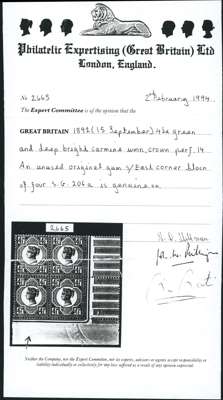 Philatelic Expertising (Great Britain) Ltd
London, England.
No 2665
2nd February 1994
The Expert Committee is of the opinion that the
GREAT BRITAIN 1892 (15 September) 4½d green
and deep bright carmine wmk, crown perf. 14
An unused original gum East corner block
of four S.G. 206a is genuine.
2665
Neither the Company, nor the Expert Committee, nor its experts, advisers or agents accept responsibility or
liability individually or collectively for any loss suffered as a result of any opinion expressed.